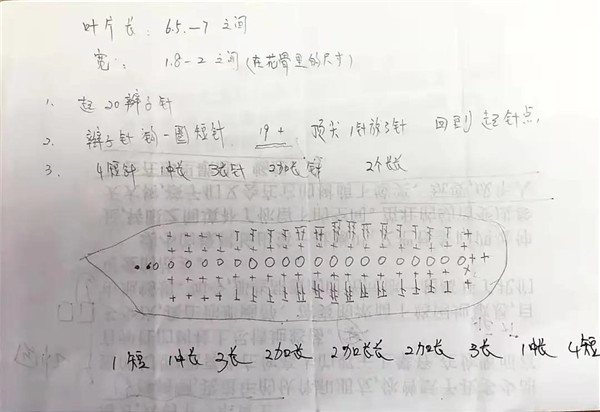 叶片长：6.5.—7 之间
宽：1.8-2 之间(在花骨里的尺寸)
1. 起20辫子针
2. 辫子针钩一圈短针 19+ 顶尖1针放3针 回到起针点.
3. 4短针 1中长 3长针 2加长针 2个长长
1短 1中长 3长 2加长 2加长长 2加长 3长 1中长 4短